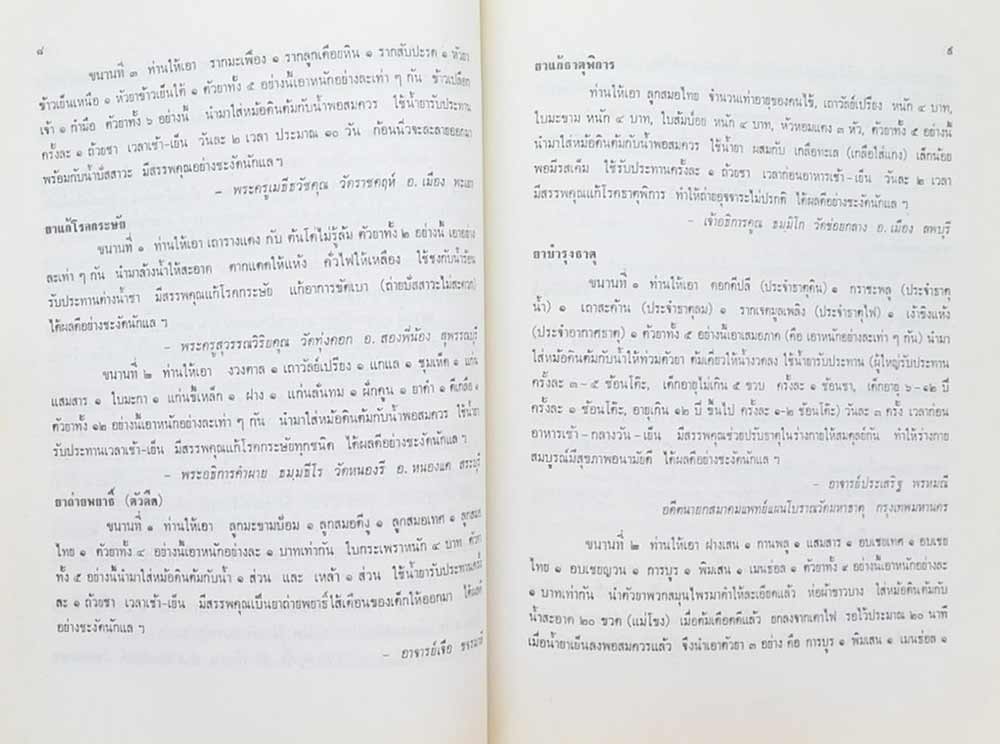 ๘
ขนานที่ ๓ ท่านให้เอา รากมะเฟือง ๑ รากลูกเดือยหิน ๑ รากสับปะรด ๑ หัวยา
ข้าวเย็นเหนือ ๑ หัวยาข้าวเย็นใต้ ๑ ตัวยาทั้ง ๕ อย่างนี้เอาหนักอย่างละเท่า ๆ กัน ข้าวเปลือก
เจ้า ๑ กำมือ ตัวยาทั้ง ๖ อย่างนี้ นำมาใส่หม้อดินต้มกับน้ำพอสมควร ใช้น้ำยารับประทาน
ครั้งละ ๑ ถ้วยชา เวลาเช้า-เย็น วันละ ๒ เวลา ประมาณ ๑๐ วัน ก้อนนิ่วจะละลายออกมา
พร้อมกับน้ำปัสสาวะ มีสรรพคุณอย่างชะงัดนักแล ฯ
– พระครูเมธีธวัชคุณ วัดราชคฤห์ อ. เมือง พะเยา
ยาแก้โรคกระษัย
ขนานที่ ๑ ท่านให้เอา เถารางแดง กับ ต้นโด่ไม่รู้ล้ม ตัวยาทั้ง ๒ อย่างนี้ เอาอย่าง
ละเท่า ๆ กัน นำมาล้างน้ำให้สะอาด ตากแดดให้แห้ง คั่วไฟให้เหลือง ใช้ชงกับน้ำร้อน
รับประทานต่างน้ำชา มีสรรพคุณแก้โรคกระษัย แก้อาการขัดเบา (ถ่ายปัสสาวะไม่สะดวก)
ได้ผลดีอย่างชะงัดนักแล ฯ
– พระครูสุวรรณวิริยคุณ วัดทุ่งคอก อ. สองพี่น้อง สุพรรณบุรี
ขนานที่ ๒ ท่านให้เอา งวงตาล ๑ เถาวัลย์เปรียง ๑ แกแล ๑ ชุมเห็ด ๑ แก่น
แสมสาร ๑ ใบมะกา ๑ แก่นขี้เหล็ก ๑ ฝาง ๑ แก่นลั่นทม ๑ ฝักคูน ๑ ยาดำ ๑ ดีเกลือ ๑
ตัวยาทั้ง ๑๒ อย่างนี้เอาหนักอย่างละเท่า ๆ กัน นำมาใส่หม้อดินต้มกับน้ำพอสมควร ใช้น้ำยา
รับประทานเวลาเช้า-เย็น มีสรรพคุณแก้โรคกระษัยทุกชนิด ได้ผลดีอย่างชะงัดนักแล ฯ
– พระอธิการคำผาย ธมฺมธีโร วัดหนองรี อ. หนองแค สระบุรี
ยาถ่ายพยาธิ์ (ตัวตืด)
ขนานที่ ๑ ท่านให้เอา ลูกมะขามป้อม ๑ ลูกสมอดีงู ๑ ลูกสมอเทศ ๑ ลูกสมอ
ไทย ๑ ตัวยาทั้ง ๔ อย่างนี้เอาหนักอย่างละ ๑ บาทเท่ากัน ใบกระเพราหนัก ๔ บาท ตัวยา
ทั้ง ๕ อย่างนี้นำมาใส่หม้อดินต้มกับน้ำ ๑ ส่วน และ เหล้า ๑ ส่วน ใช้น้ำยารับประทานครั้ง
ละ ๑ ถ้วยชา เวลาเช้า-เย็น มีสรรพคุณเป็นยาถ่ายพยาธิ์ไส้เดือนของเด็กให้ออกมา ได้ผลดี
อย่างชะงัดนักแล ฯ
– อาจารย์เจือ
๙
ยาแก้ธาตุพิการ
ท่านให้เอา ลูกสมอไทย จำนวนเท่าอายุของคนไข้, เถาวัลย์เปรียง หนัก ๔ บาท,
ใบมะขาม หนัก ๔ บาท, ใบส้มป่อย หนัก ๔ บาท, หัวหอมแดง ๓ หัว, ตัวยาทั้ง ๕ อย่างนี้
นำมาใส่หม้อดินต้มกับน้ำพอสมควร ใช้น้ำยา ผสมกับ เกลือทะเล (เกลือใส่แกง) เล็กน้อย
พอมีรสเค็ม ใช้รับประทานครั้งละ ๑ ถ้วยชา เวลาก่อนอาหารเช้า-เย็น วันละ ๒ เวลา
มีสรรพคุณแก้โรคธาตุพิการ ทำให้ถ่ายอุจจาระไม่ปรกติ ได้ผลดีอย่างชะงัดนักแล ฯ
– เจ้าอธิการคูณ ธมฺมิโก วัดข่อยกลาง อ. เมือง ลพบุรี
ยาบำรุงธาตุ
ขนานที่ ๑ ท่านให้เอา ดอกดีปลี (ประจำธาตุดิน) ๑ กราชะพลู (ประจำธาตุ
น้ำ) ๑ เถาสะค้าน (ประจำธาตุลม) ๑ รากเจตมูลเพลิง (ประจำธาตุไฟ) ๑ เง้าขิงแห้ง
(ประจำอากาศธาตุ) ๑ ตัวยาทั้ง ๕ อย่างนี้เอาเสมอภาค (คือ เอาหนักอย่างละเท่า ๆ กัน) นำมา
ใส่หม้อดินต้มกับน้ำให้ท่วมตัวยา ต้มเดี่ยวให้น้ำงวดลง ใช้น้ำยารับประทาน (ผู้ใหญ่รับประทาน
ครั้งละ ๓-๕ ช้อนโต๊ะ, เด็กอายุไม่เกิน ๕ ขวบ ครั้งละ ๑ ช้อนชา, เด็กอายุ ๖-๑๒ ปี
ครั้งละ ๑ ช้อนโต๊ะ, อายุเกิน ๑๒ ปี ขึ้นไป ครั้งละ ๑-๒ ช้อนโต๊ะ) วันละ ๓ ครั้ง เวลาก่อน
อาหารเช้า-กลางวัน-เย็น มีสรรพคุณช่วยปรับธาตุในร่างกายให้สมดุลย์กัน ทำให้ร่างกาย
สมบูรณ์มีสุขภาพอนามัยดี ได้ผลดีอย่างชะงัดนักแล ฯ
– อาจารย์ประเสริฐ พรหมณี
อดีตนายกสมาคมแพทย์แผนโบราณวัดมหาธาตุ กรุงเทพมหานคร
ขนานที่ ๒ ท่านให้เอา ฝางเสน ๑ กานพลู ๑ แสมสาร ๑ อบเชยเทศ ๑ อบเชย
ไทย ๑ อบเชยญวน ๑ การบูร ๑ พิมเสน ๑ เมนธ่อล ๑ ตัวยาทั้ง ๙ อย่างนี้เอาหนักอย่างละ
๑ บาทเท่ากัน นำตัวยาพวกสมุนไพรมาตำให้ละเอียดแล้ว ห่อผ้าขาวบาง ใส่หม้อดินต้มกับ
น้ำสะอาด ๒๐ ขวด (แม่โขง) เมื่อต้มเดือดดีแล้ว ยกลงจากเตาไฟ รอไว้ประมาณ ๒๐ นาที
เมื่อน้ำยาเย็นลงพอสมควรแล้ว จึงนำเอาตัวยา ๓ อย่าง คือ การบูร ๑ พิมเสน ๑ เมนธ่อล ๑